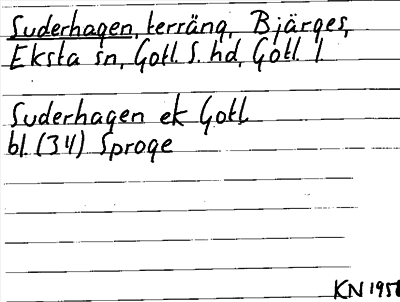 Suderhagen, terräng, Bjärges,
Eksta sn, Gotl. S. hd, Gotl. l.
Suderhagen ek Gotl
bl. (34) Sproge
KN